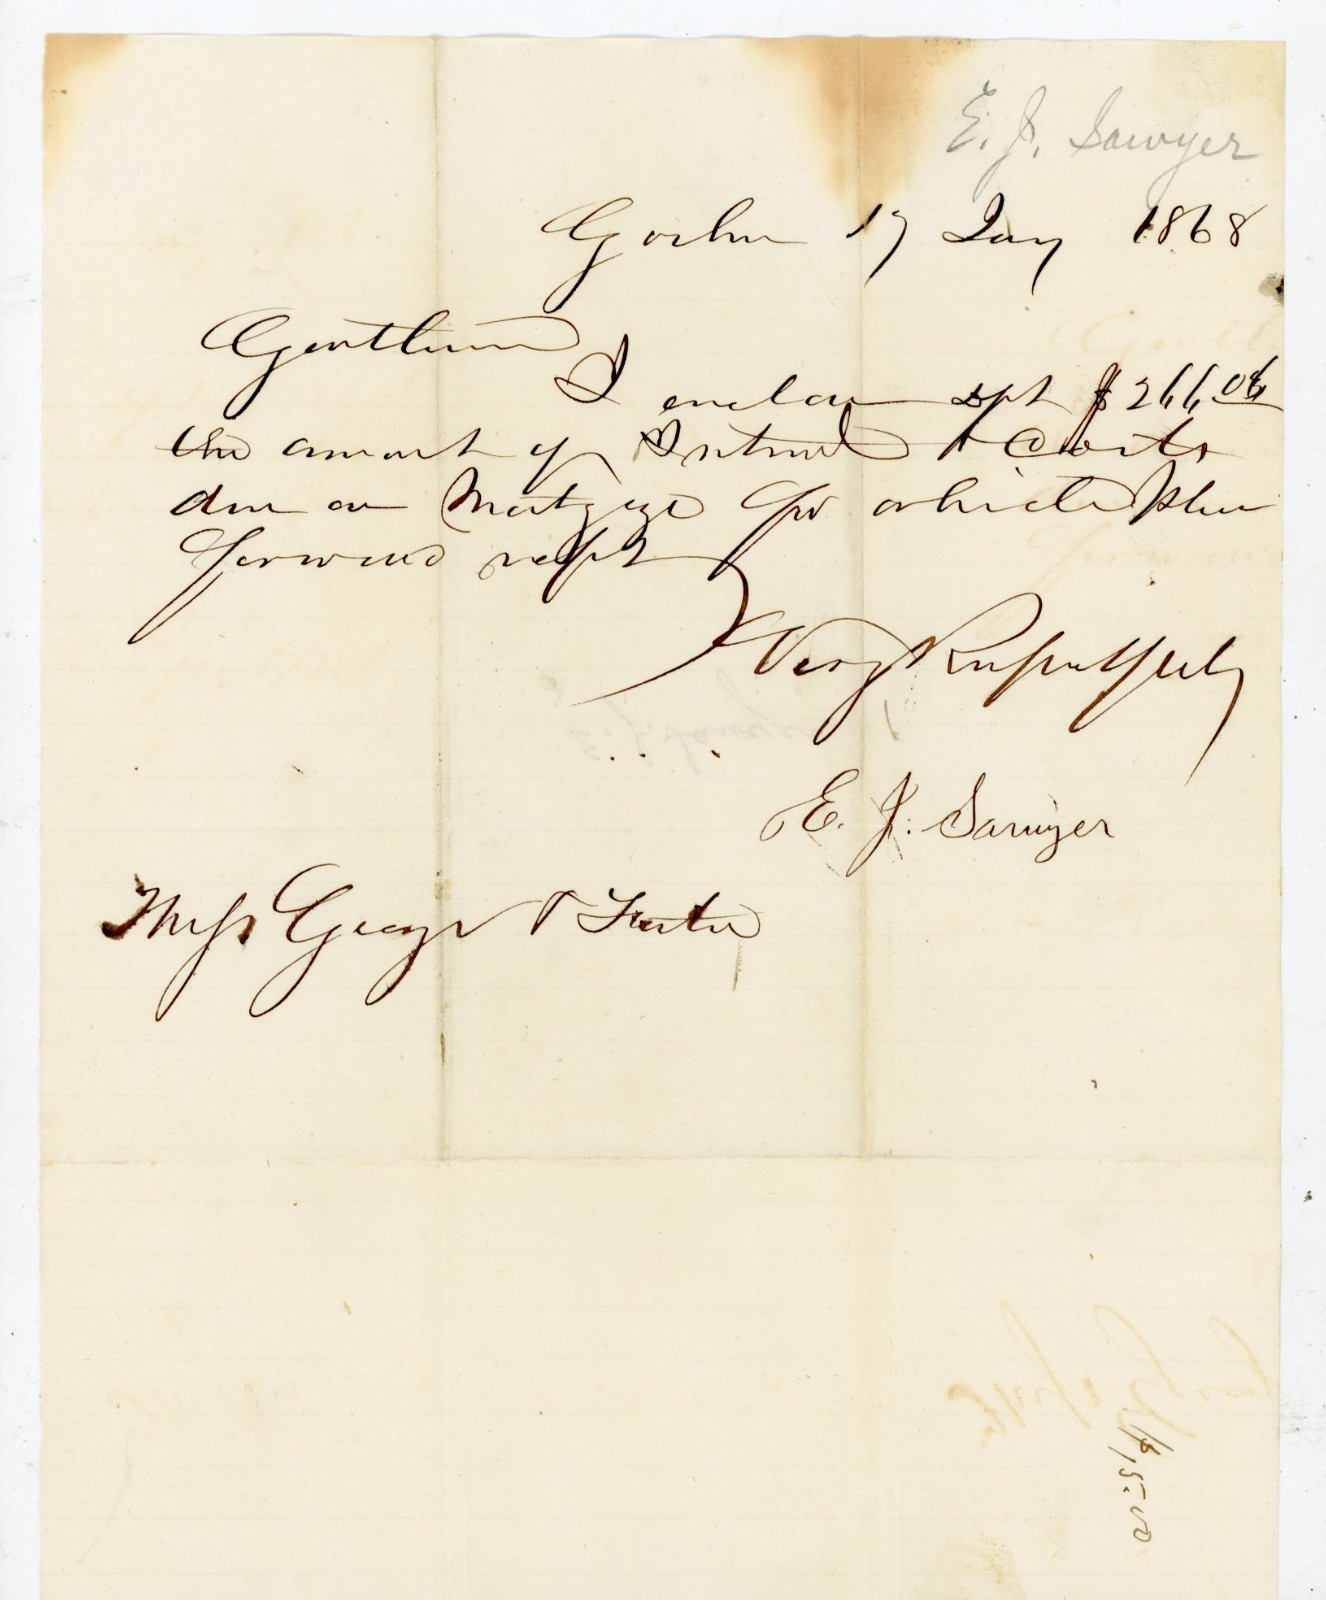 E. J. Sawyer
Goshen 17 Jany 1868
Gentlemen
I enclose dft $266.06
the amount of Interest & Costs
due on Mortgage for which please
forward recpt
Very Respectfully
E. J. Sawyer
Mess George & Foster